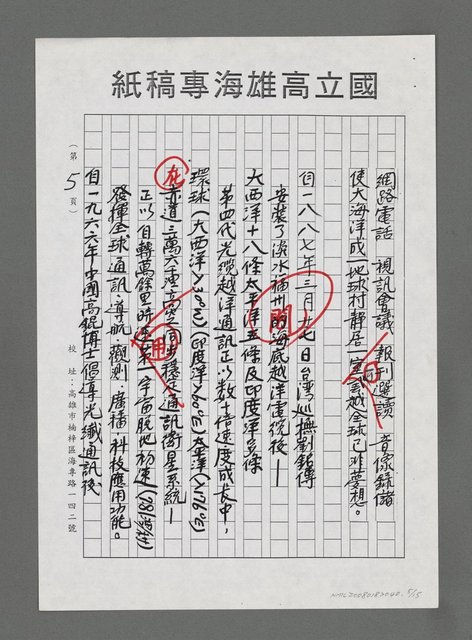 國立高雄海專稿紙
網路電話 視訊會議 報刊選讀 音像錄儲
使大海洋成一地球村靜居一室 越全球已非夢想。
自一八八七年三月廿七日台灣巡撫劉銘傳
安裝了淡水福州的海底越洋電纜後—
大西洋十八條太平洋五條及印度洋三條
第四代光纜越洋通訊正以數十倍速度成長中,
環球(大西洋 印度洋 太平洋
在赤道三萬六千 高空同步穩定通訊衛星系統—
正以自轉萬餘里時速 第一宇宙脫地初速
發揮全球通訊、導航、觀測、廣播、科技應用功能。
自一九六六年中國高錕博士倡導光纖通訊後
(第5頁)
校址:高雄市楠梓區海專路一四二號
NMTL20080183040. 5/15